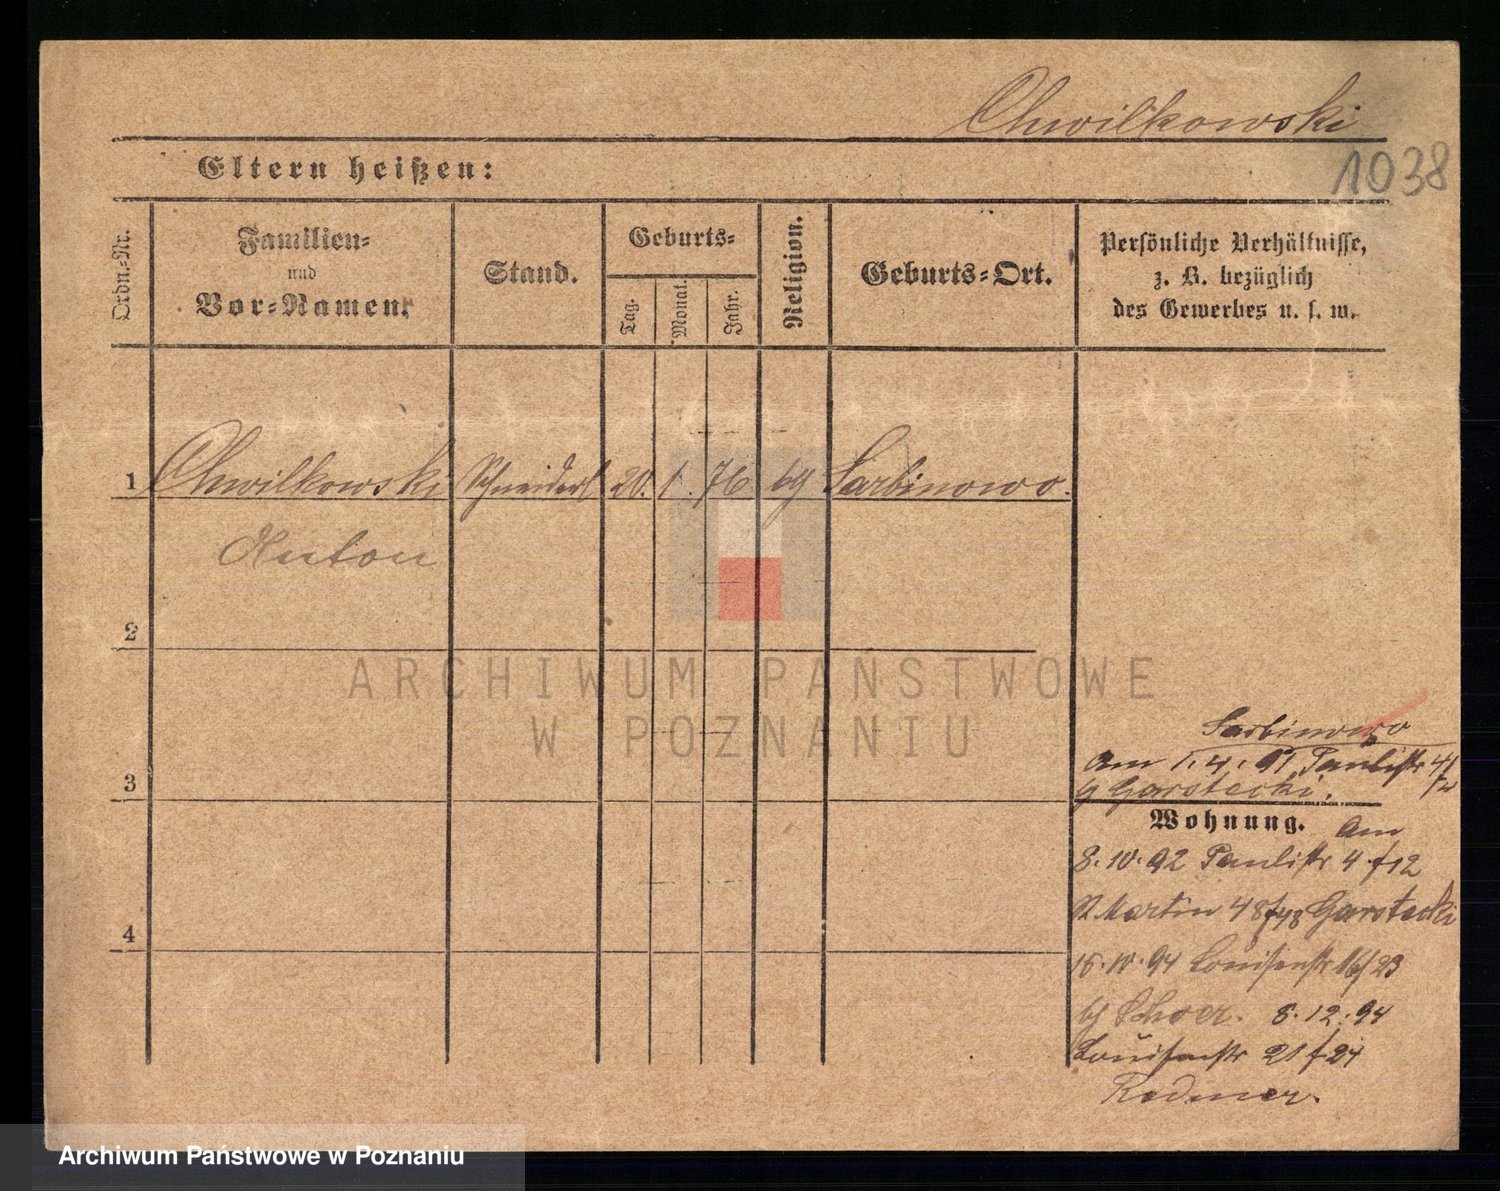 Chwilkowski
1038
Eltern heißen:
Ordn.-Nr.
Familien-
und
Vor-Namen.
Stand.
Geburts-
Tag.
Monat.
Jahr.
Religion.
Geburts-Ort.
Persönliche Verhältnisse,
z. B. bezüglich
des Gewerbes u. s. w.
1 Chwilkowski 20. 1. 76 Sarbinowo.
Anton
2
ARCHIWUM PAŃSTWOWE
W POZNANIU
3
Sarbinowo
Am 1.4.91 Paulistr
Garstecki.
Wohnung. Am
8.10.92 Paulistr 4 f 12
St Martin 48 Garstecki
4
15.10.94 Louisenstr 16/23
8.12.94
Louisenstr 21 f 24
Redmer.
Archiwum Państwowe w Poznaniu